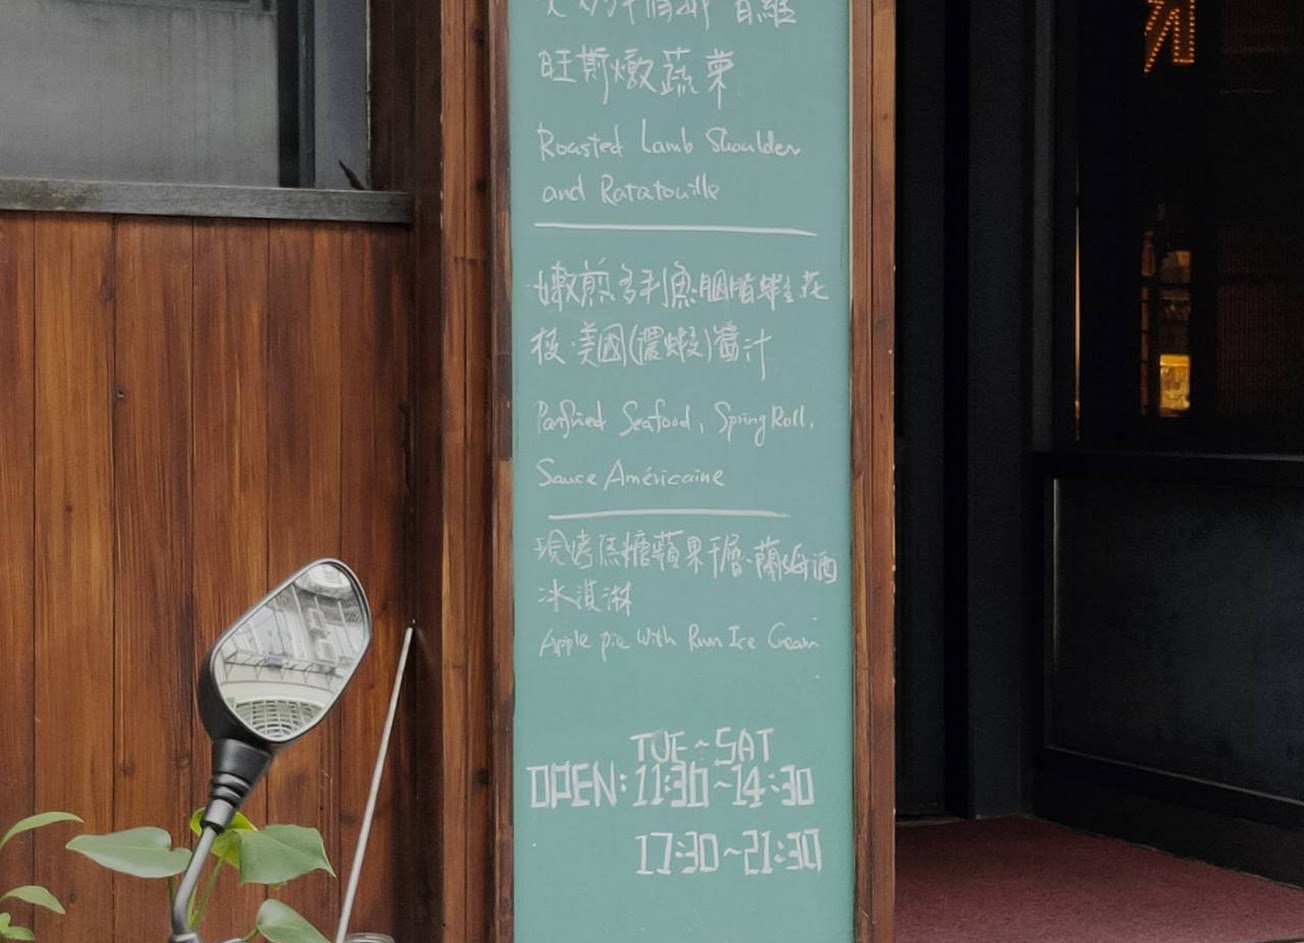 旺斯燉蔬菜
Roasted Lamb Shoulder
and Ratatouille
嫩煎多利魚·胭脂蝦餃花
後·美國(濃蝦)醬汁
Panfried Seafood, Spring Roll,
Sauce Américaine
現烤焦糖蘋果千層·蘭姆酒
冰淇淋
Apple pie with Rum Ice Cream
TUE~SAT
OPEN:11:30~14:30
17:30~21:30